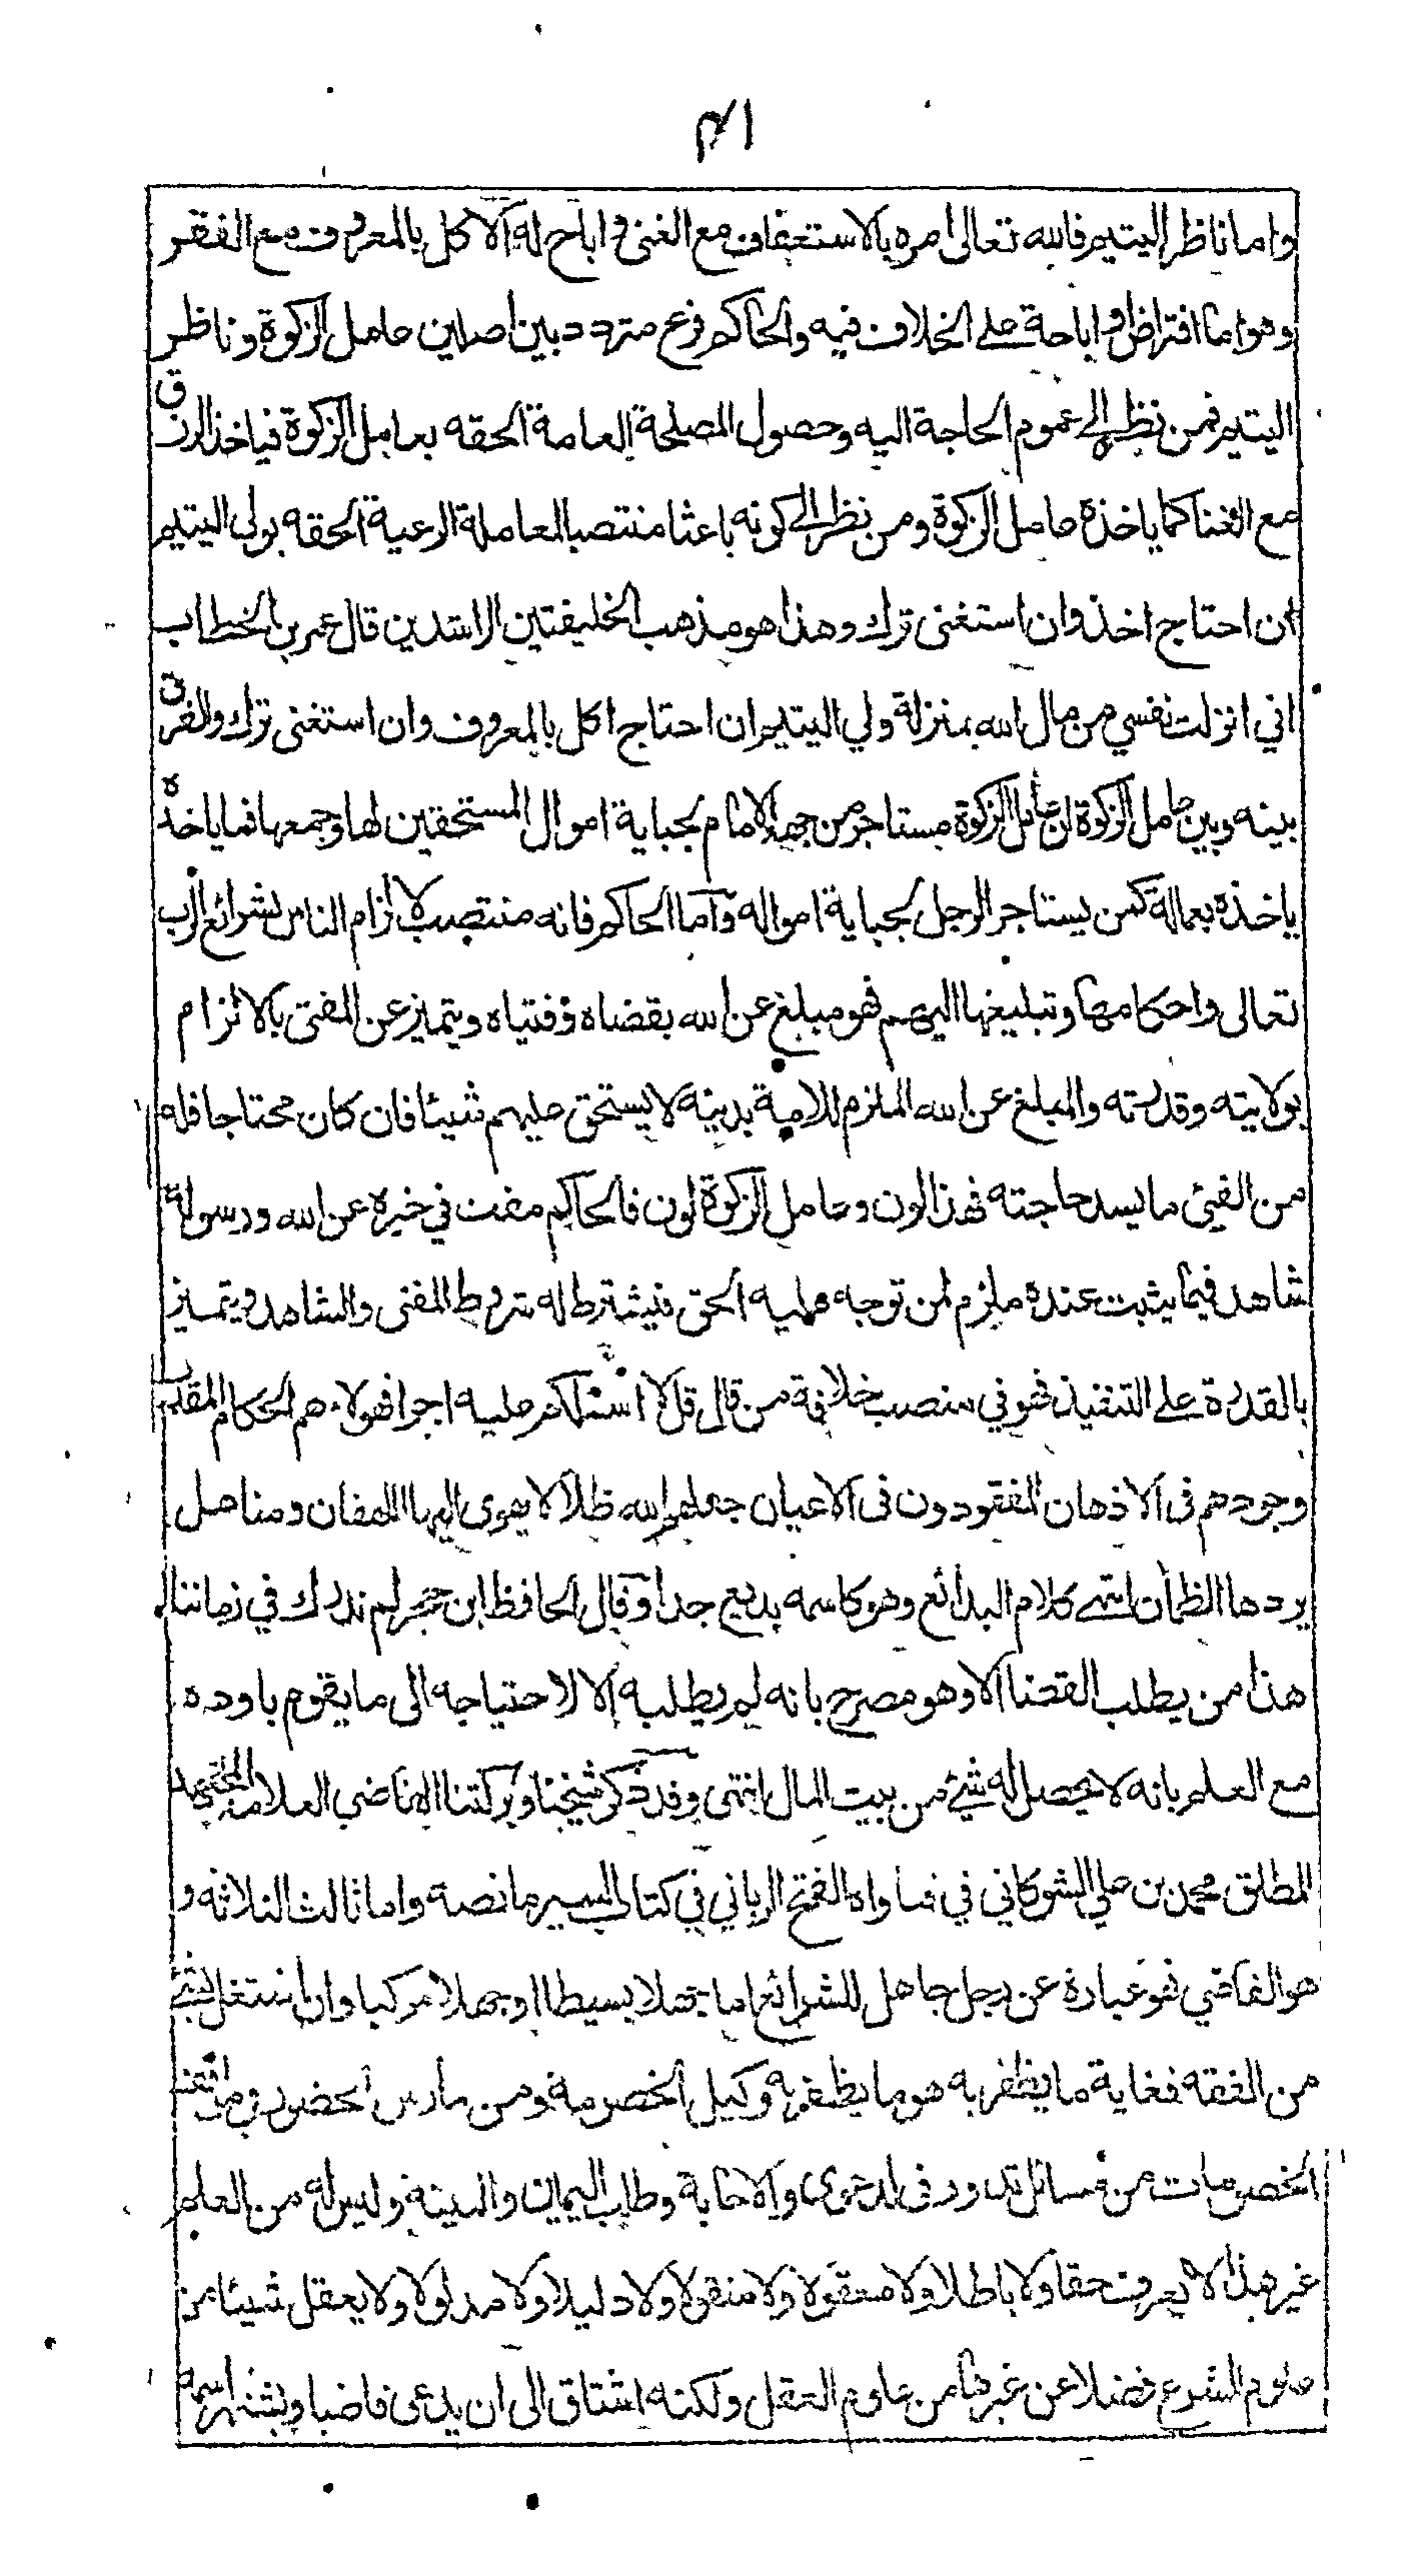 واما ناظر اليتيم فالله تعالى امره بالاستعفاف مع الغنى واباح له الاكل بالمعروف مع الفقر
وهو اما اقتراض او اباحة على الخلاف فيه والحاكم فرع متردد بين اصلين عامل الزكوة وناظر
اليتيم فمن نظر الى عموم الحاجة اليه وحصول المصلحة العامة الحقه بعامل الزكوة فياخذ الرزق
مع الغنا كما ياخذه عامل الزكوة ومن نظر الى كونه باعثا منتصبا لمعاملة الرعية الحقه بولى اليتيم
ان احتاج اخذ وان استغنى ترك وهذا هو مذهب الخليفتين الراشدين قال عمر بن الخطاب
اني انزلت نفسي من مال الله بمنزلة ولي اليتيم ان احتاج اكل بالمعروف وان استغنى ترك والفرق
بينه وبين عامل الزكوة ان عامل الزكوة مستاجر من جهة الامام لجباية اموال المستحقين لها وجمعها فما ياخذه
ياخذه بعمالة كمن يستاجر الرجل لجباية امواله واما الحاكم فانه منتصب لالزام الناس بشرائع الرب
تعالى واحكامها وتبليغها اليهم فهو مبلغ عن الله بقضاه وفتياه ويتميز عن المفتى بالالزام
بولايته وقدرته والمبلغ عن الله الملزم للامة بدينه لا يستحق عليهم شيئا فان كان محتاجا فله
من الفيئ ما يسد حاجته فهذا لون وعامل الزكوة لون فالحاكم مفت في خبره عن الله ورسوله
شاهد فيما يثبت عنده ملزم لمن توجه عليه الحق فيشترط له شروط المفتى والشاهد ويتميز
بالقدرة على التنفيذ فهو في منصب خلافة من قال قل لا اسئلكم عليه اجرا فهولاء هم الحكام المقدر
وجودهم فى الاذهان المفقودون فى الاعيان جعلهم الله ظلالا يهوى اليها اللهفان ومناهل
يردها الظمأن انتهى كلام البدائع وهو كاسمه بديع جدا وقال الحافظ ابن حجر لم ندرك في زماننا
هذا من يطلب القضا الا وهو مصرح بانه لم يطلبه الا لاحتياجه الى ما يقوم باوده
مع العلم بانه لا يحصل له شيئ من بيت المال انتهى وقد ذكر شيخنا وبركتنا القاضي العلامة المجتهد
المطلق محمد بن علي الشوكاني في فتاواه الفتح الرباني في كتاب السير ما نصه واما ثالث الثلاثه و
هو القاضي فهو عبارة عن رجل جاهل للشرائع اما جهلا بسيطا او جهلا مركبا وان استغل بشئ
من الفقه فغاية ما يظفر به هو ما يظفر به وكيل الخصومة ومن مارس الحضور في مواقف
الخصومات من مسائل تدور فى الدعوى والاجابة وطلب اليمين والبينة وليس له من العلم
غير هذا لا يعرف حقا ولا باطلا ولا معقولا ولا منقولا ولا دليلا ولا مدلولا ولا يعقل شيئا من
علوم الشرع فضلا عن غيرها من علوم العقل ولكنه اشتاق الى ان يدعى قاضيا ويشتهر اسمه